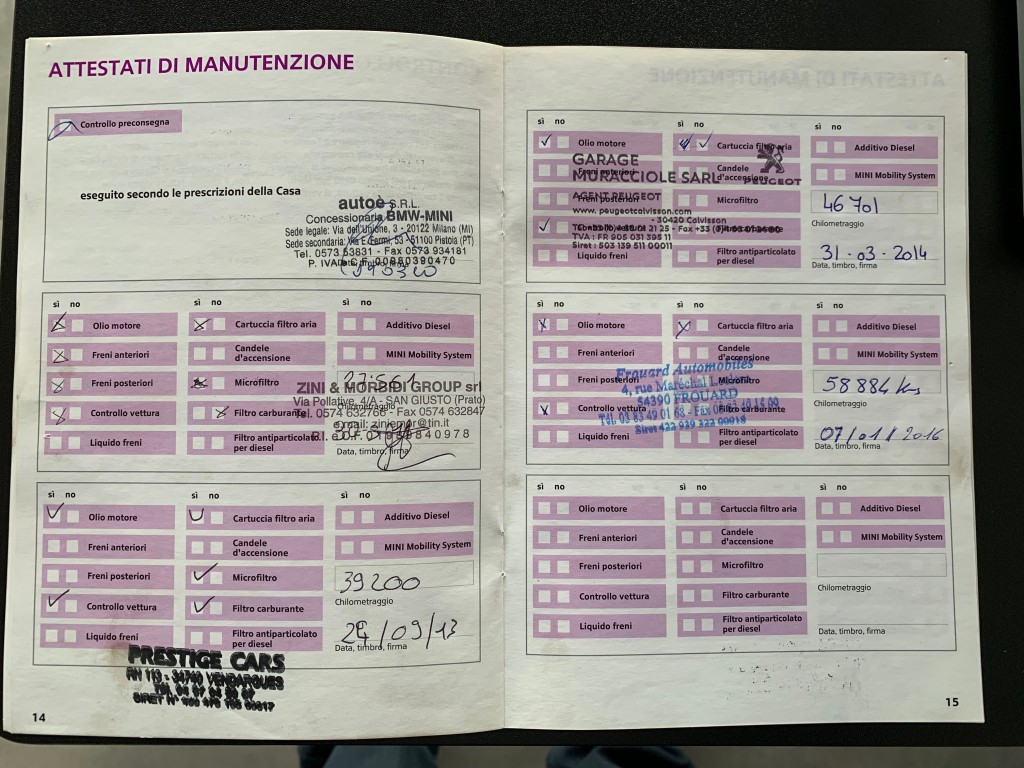 ATTESTATI DI MANUTENZIONE
Controllo preconsegna
eseguito secondo le prescrizioni della Casa
autoè S.R.L.
Concessionaria BMW-MINI
Sede legale: Via dell'Unione, 3 - 20122 Milano (MI)
Sede secondaria: Via E. Fermi, 53 - 51100 Pistoia (PT)
Tel. 0573 53831 - Fax 0573 934181
P. IVA e C.F. 00850390470
sì no
Olio motore
Freni anteriori
Freni posteriori
Controllo vettura
Liquido freni
Cartuccia filtro aria
Candele
d'accensione
Microfiltro
Filtro carburante
Filtro antiparticolato
per diesel
Additivo Diesel
MINI Mobility System
Chilometraggio
Data, timbro, firma
ZINI & MORBIDI GROUP srl
Via Pollative, 4/A - SAN GIUSTO (Prato)
Tel. 0574 632768 - Fax 0574 632847
sì no
sì no
Olio motore
Freni anteriori
Freni posteriori
Controllo vettura
Liquido freni
Cartuccia filtro aria
Candele
d'accensione
Microfiltro
Filtro carburante
Filtro antiparticolato
per diesel
Additivo Diesel
MINI Mobility System
39200
Chilometraggio
/09/13
Data, timbro, firma
PRESTIGE CARS
VENDARGUES
14
sì no
sì no
sì no
Olio motore
Freni anteriori
Freni posteriori
Liquido freni
Cartuccia filtro aria
Candele
d'accensione
Microfiltro
Filtro antiparticolato
per diesel
Additivo Diesel
MINI Mobility System
46701
Chilometraggio
31-03-2014
Data, timbro, firma
GARAGE
MURACCIOLE SARL
AGENT PEUGEOT
www.peugeotcalvisson.com
- 30420 Calvisson
TVA : FR 905 031 395 11
Siret : 503 139 511 00011
PEUGEOT
sì no
sì no
sì no
Olio motore
Freni anteriori
Freni posteriori
Controllo vettura
Liquido freni
Cartuccia filtro aria
Candele
d'accensione
Microfiltro
Filtro carburante
Filtro antiparticolato
per diesel
Additivo Diesel
MINI Mobility System
58884 Kms
Chilometraggio
07/01/2016
Data, timbro, firma
Frouard Automobiles
4, rue Maréchal
54390 FROUARD
sì no
sì no
sì no
Olio motore
Freni anteriori
Freni posteriori
Controllo vettura
Liquido freni
Cartuccia filtro aria
Candele
d'accensione
Microfiltro
Filtro carburante
Filtro antiparticolato
per diesel
Additivo Diesel
MINI Mobility System
Chilometraggio
Data, timbro, firma
15